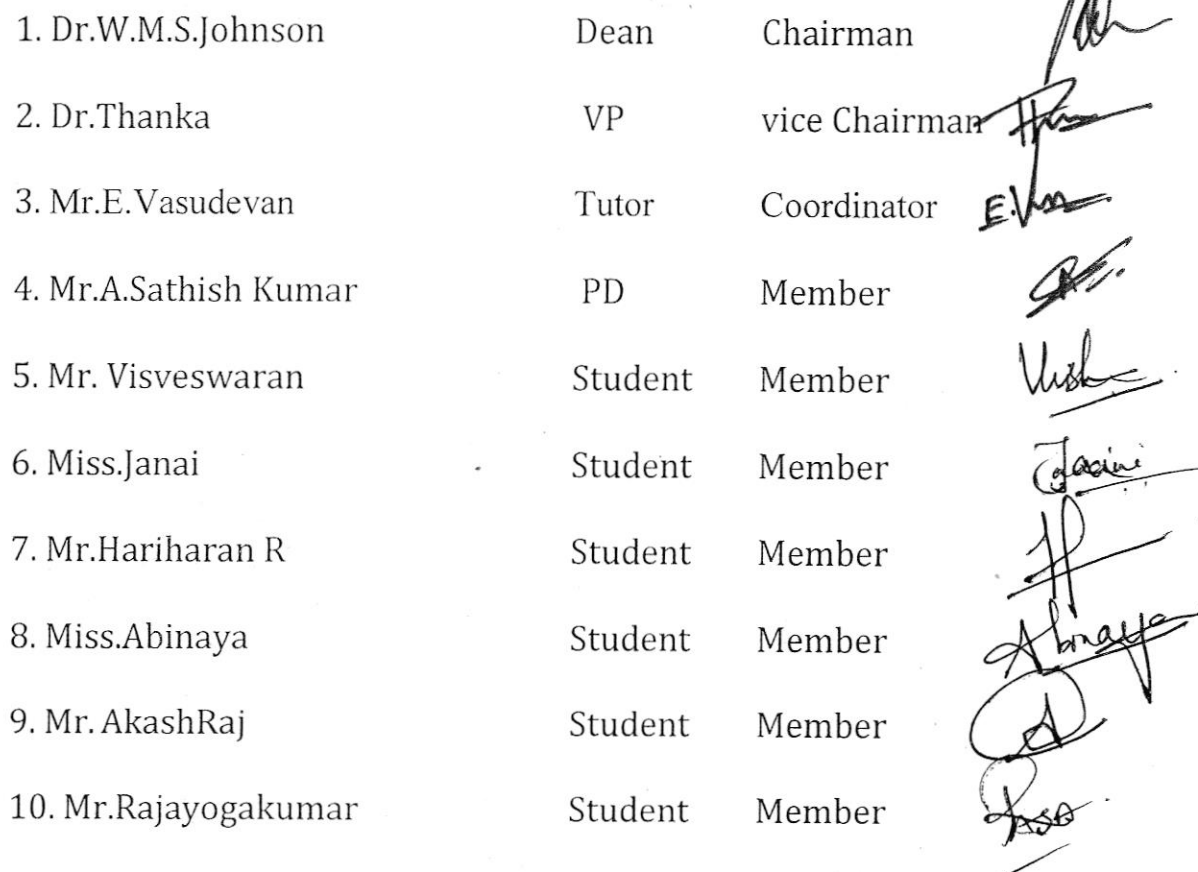 1. Dr.W.M.S.Johnson Dean Chairman
2. Dr.Thanka VP vice Chairman
3. Mr.E.Vasudevan Tutor Coordinator E.Vas
4. Mr.A.Sathish Kumar PD Member
5. Mr. Visveswaran Student Member
6. Miss.Janai Student Member
7. Mr.Hariharan R Student Member
8. Miss.Abinaya Student Member Abinaya
9. Mr. AkashRaj Student Member A
10. Mr.Rajayogakumar Student Member